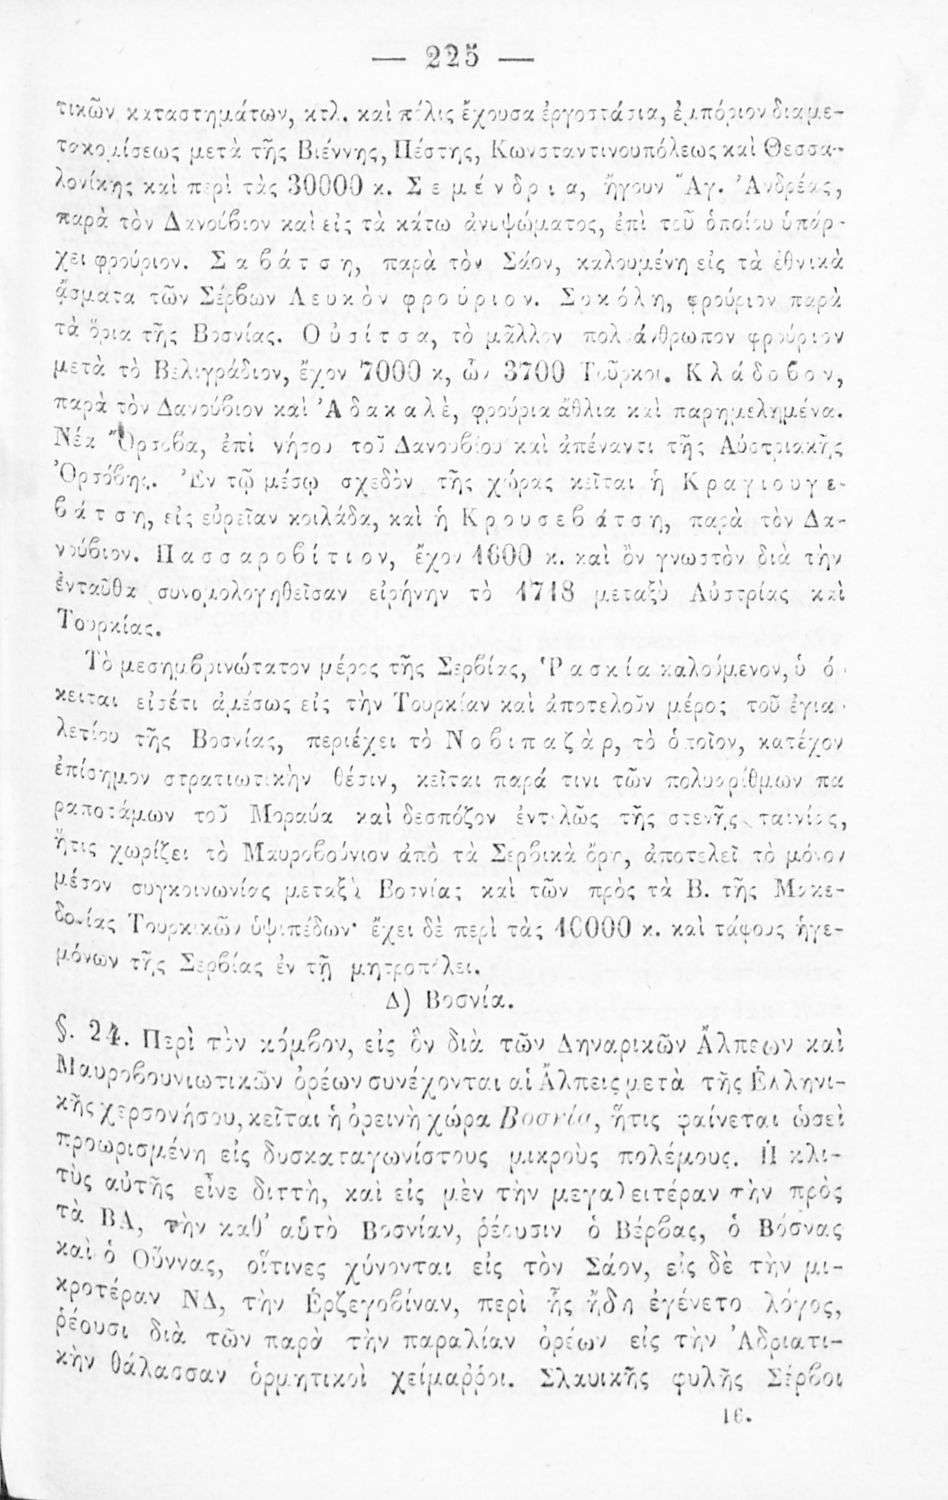 — 225 —
τικῶν καταστημάτων, κτλ. καὶ πόλις ἔχουσα ἐργοστάσια, ἐμπόριον διαμε-
τακομίσεως μετὰ τῆς Βιέννης, Πέστης, Κωνσταντινουπόλεως καὶ Θεσσα-
λονίκης καὶ περὶ τὰς 30000 κ. Σεμένδρια, ἤγουν Ἅγ. Ἀνδρέας,
παρὰ τὸν Δανούβιον καὶ εἰς τὰ κάτω ἀνυψώματος, ἐπὶ τοῦ ὁποίου ὑπάρ-
χει φρούριον. Σαβάτση, παρὰ τὸν Σάον, καλουμένη εἰς τὰ ἐθνικὰ
ᾄσματα τῶν Σέρβων Λευκὸν φρούριον. Σοκόλη, φρούριον παρὰ
τὰ ὅρια τῆς Βοσνίας. Οὐσίτσα, τὸ μᾶλλον πολυάνθρωπον φρούριον
μετὰ τὸ Βελιγράδιον, ἔχον 7000 κ, ὧν 3700 Τοῦρκοι. Κλάδοβον,
παρὰ τὸν Δανούβιον καὶ Ἀδακαλὲ, φρούρια ἄθλια καὶ παρημελημένα.
Νέα Ὄρσοβα, ἐπὶ νήσου τοῦ Δανουβίου καὶ ἀπέναντι τῆς Αὐστριακῆς
Ὀρσόβης. Ἐν τῷ μέσῳ σχεδὸν τῆς χώρας κεῖται ἡ Κραγιουγε-
βάτση, εἰς εὐρεῖαν κοιλάδα, καὶ ἡ Κρουσεβάτση, παρὰ τὸν Δα-
νούβιον. Πασσαροβίτιον, ἔχον 1600 κ. καὶ ὂν γνωστὸν διὰ τὴν
ἐνταῦθα συνομολογηθεῖσαν εἰρήνην τὸ 1718 μεταξὺ Αὐστρίας καὶ
Τουρκίας.
Τὸ μεσημβρινώτατον μέρος τῆς Σερβίας, Ῥασκία καλούμενον, ὑπό-
κειται εἰσέτι ἀμέσως εἰς τὴν Τουρκίαν καὶ ἀποτελοῦν μέρος τοῦ ἐγια-
λετίου τῆς Βοσνίας, περιέχει τὸ Νοβιπαζὰρ, τὸ ὁποῖον, κατέχον
ἐπίσημον στρατιωτικὴν θέσιν, κεῖται παρά τινι τῶν πολυαρίθμων πα
ραποτάμων τοῦ Μοραύα καὶ δεσπόζον ἐντελῶς τῆς στενῆς ταινίας,
ἥτις χωρίζει τὸ Μαυροβούνιον ἀπὸ τὰ Σερβικὰ ὄρη, ἀποτελεῖ τὸ μόνον
μέσον συγκοινωνίας μεταξὺ Βοσνίας καὶ τῶν πρὸς τὰ Β. τῆς Μακε-
δονίας Τουρκικῶν ὑψιπέδων· ἔχει δὲ περὶ τὰς 10000 κ. καὶ τάφους ἡγε-
μόνων τῆς Σερβίας ἐν τῇ μητροπόλει.
Δ) Βοσνία.
§. 24. Περὶ τὸν κόμβον, εἰς ὃν διὰ τῶν Δηναρικῶν Ἄλπεων καὶ
Μαυροβουνιωτικῶν ὀρέων συνέχονται αἱ Ἄλπεις μετὰ τῆς Ἑλληνι-
κῆς χερσονήσου, κεῖται ἡ ὀρεινὴ χώρα Βοσνία, ἥτις φαίνεται ὡσεὶ
προωρισμένη εἰς δυσκαταγωνίστους μικροὺς πολέμους. Ἡ κλι-
τὺς αὐτῆς εἶνε διττὴ, καὶ εἰς μὲν τὴν μεγαλειτέραν τὴν πρὸς
τὰ ΒΑ, τὴν καθ’ αὑτὸ Βοσνίαν, ῥέουσιν ὁ Βέρβας, ὁ Βόσνας
καὶ ὁ Οὔννας, οἵτινες χύνονται εἰς τὸν Σάον, εἰς δὲ τὴν μι-
κροτέραν ΝΔ, τὴν Ἐρζεγοβίναν, περὶ ἧς ἤδη ἐγένετο λόγος,
ῥέουσι διὰ τῶν παρὰ τὴν παραλίαν ὀρέων εἰς τὴν Ἀδριατι-
κὴν θάλασσαν ὁρμητικοὶ χείμαῤῥοι. Σλαυικῆς φυλῆς Σέρβοι
16.